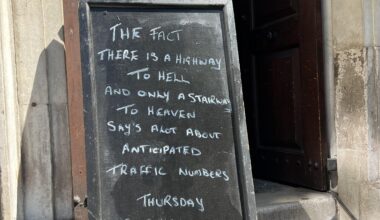 THE FACT
THERE IS A HIGHWAY
TO HELL
AND ONLY A STAIRWAY
TO HEAVEN
SAY'S ALOT ABOUT
ANTICIPATED
TRAFFIC NUMBERS
THURSDAY